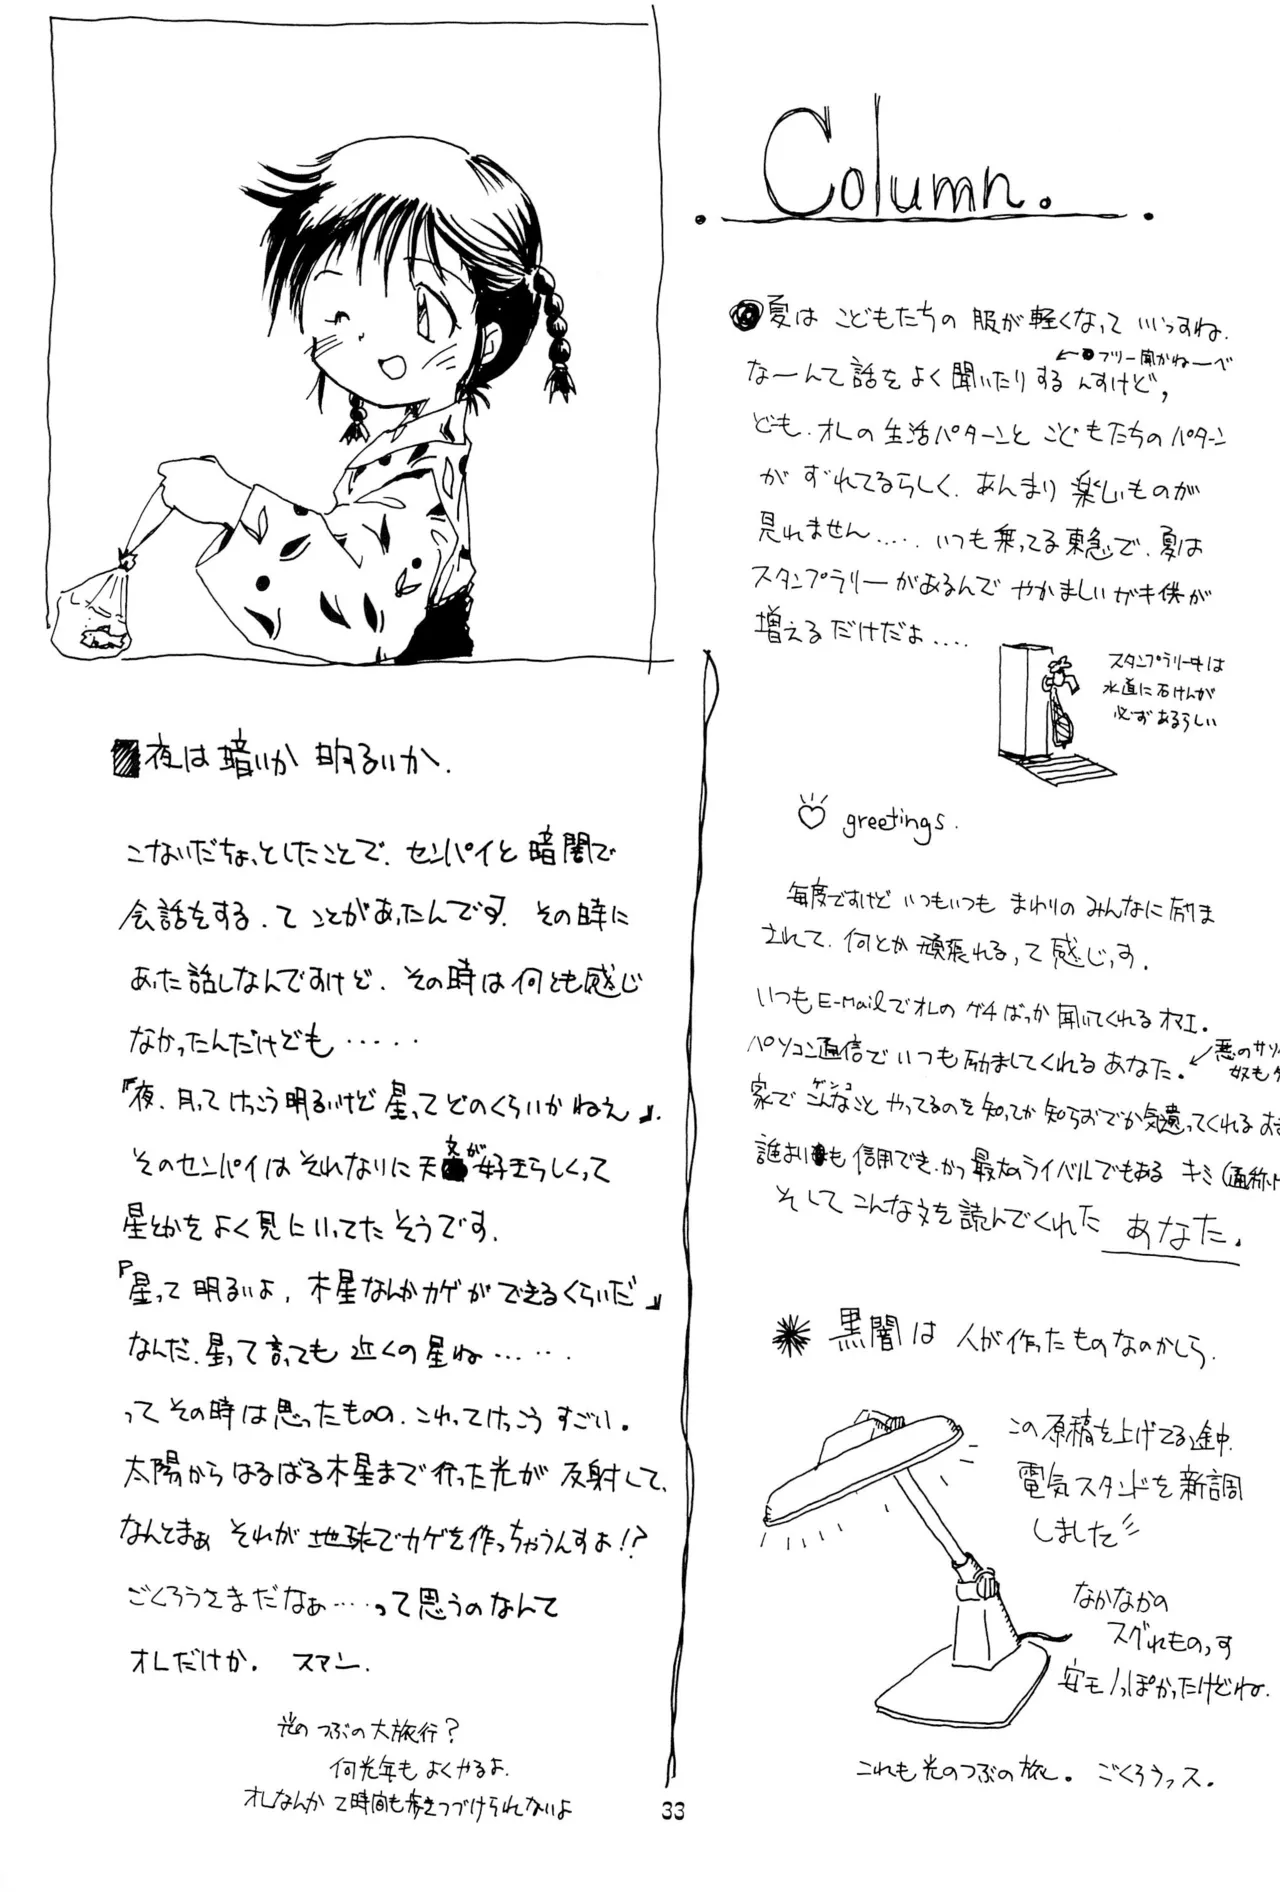 Column.
夏は こどもたちの 服が 軽くなって いいっすね.
なーんて 話を よく 聞いたり する んすけど,
←●フリー 聞かねーべ
ども. オレの 生活パターンと こどもたちの パターン
が ずれてるらしく. あんまり 楽しいものが
見れません..... いつも 乗ってる 東急で. 夏は
スタンプラリー があるんで やかましい ガキ供が
増えるだけだよ....
スタンプラリー中は
水道に石けんが
必ず あるらしい
♡ greetings.
毎度ですけど いつもいつも まわりの みんなに 励ま
されて. 何とか 頑張れるって 感じっす.
いつも E-Mailで オレの グチ ばっか 聞いてくれる オマエ.
パソコン通信で いつも 励ましてくれる あなた.
←悪のサソ
奴も
家で こんなこと やってるのを 知ってか 知らずでか 気遣ってくれる
ゲンコ
誰よりも 信用でき. かつ 最大の ライバルでもある キミ (通称.
そして こんな文を 読んでくれた あなた.
黒闇は 人が 作った ものなのかしら.
この 原稿を 上げてる 途中.
電気スタンドを 新調
しました
なかなかの
スグれものっす
安モノっぽかったけどね.
これも 光の つぶの 旅. ごくろうっス.
夜は 暗いか 明るいか.
こないだ ちょっとしたことで. センパイと 暗闇で
会話をする. て ことが あったんです. その時に
あった 話しなんですけど. その時は 何とも 感じ
なかったんだけども.....
『夜. 月って けっこう 明るいけど 星って どのくらいか ねえ』.
その センパイは それなりに 天文が 好きらしくって
星とかを よく 見に いってた そうです.
『星って 明るいよ. 木星なんか カゲが できるくらいだ』
なんだ. 星って 言っても 近くの 星ね.....
って その時は 思ったものの. これって けっこう すごい.
太陽から はるばる 木星まで 行った 光が 反射して.
なんとまぁ それが 地球で カゲを 作っちゃうんすよ!?
ごくろうさまだなぁ....って 思うの なんて
オレだけか. スマン.
光の つぶの 大旅行?
何光年も よくやるよ.
オレなんか 2時間も 歩きつづけられないよ
33